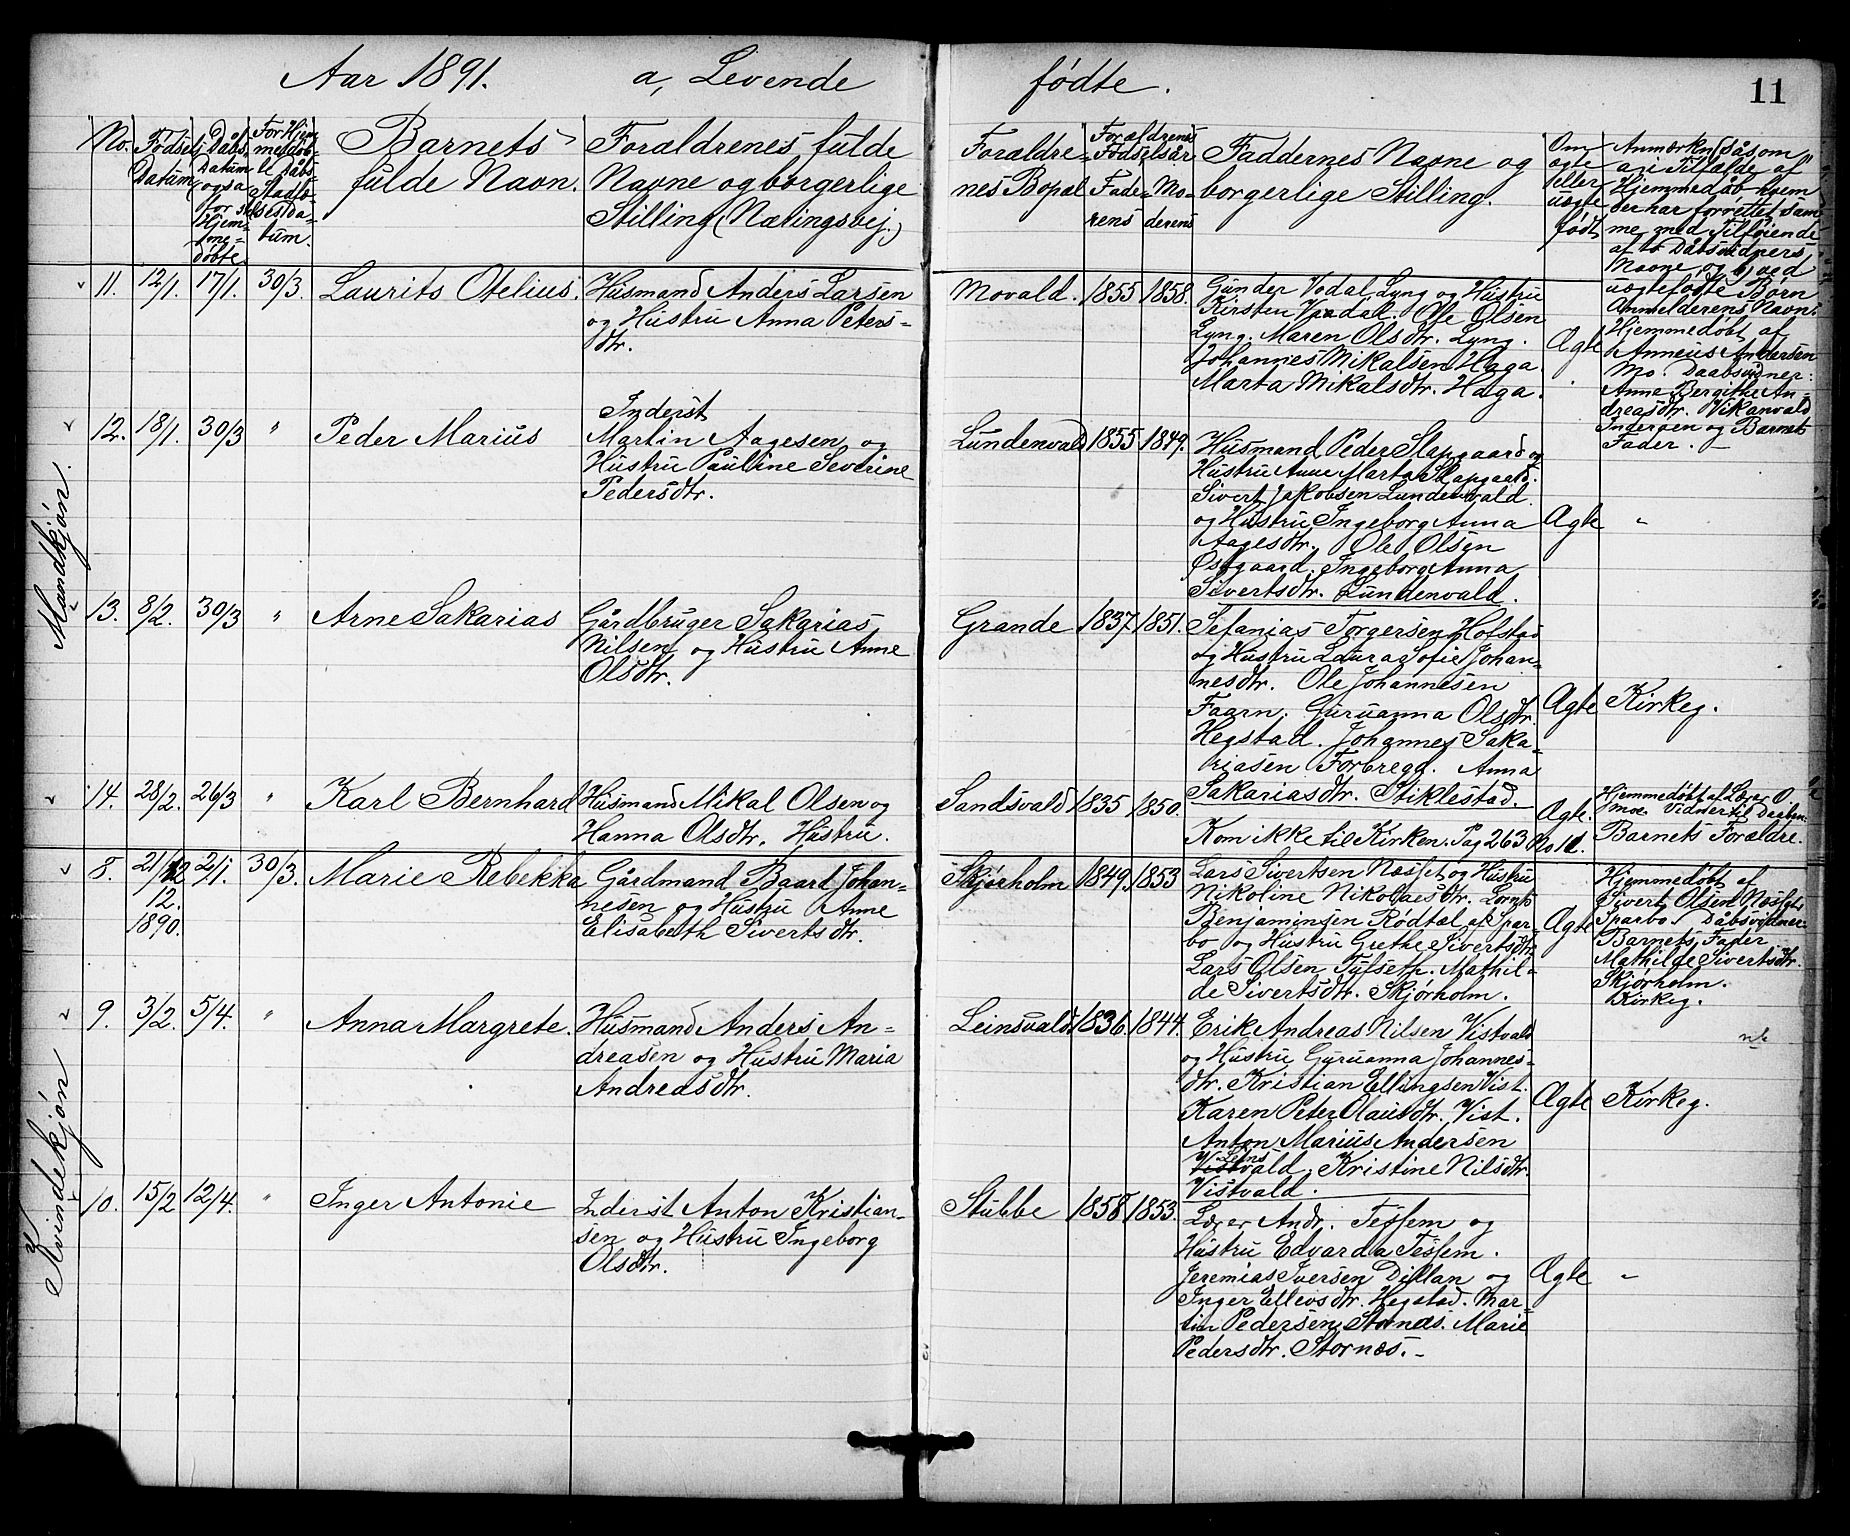 Aar 1891. a, Levende fødte. 11
No.
Fødsels
Datum
Dåbs
Datum
også
for
Hjem-
me-
døbte
For Hjem-
medøb-
te Dåbs
Stadfæ-
stelsesDa-
tum.
Barnets
fulde Navn.
Forældrenes fulde
Navne og borgerlige
Stilling (Næringsvej.)
Forældre-
nes Bopæl
Forældrenes
Fødselsår
Fade-
rens
Mo-
derens
Faddernes Navne og
borgerlige Stilling.
Om
ægte
eller
uægte
født
Anmærkn. såsom
a, i Tilfælde af
Hjemmedåb hvem
der har forrettet sam
me med Tilføiende
af to Dåbsvidners
Navne, og b, ved
uægtefødte Børn
Anmelderens Navn.
Mandkjøn.
11. 12/1. 17/1. 30/3. Laurits Otelius.
Husmand Anders Larsen
og Hustru Anna Peters-
dtr.
Movald. 1855 1858.
Gunder Vodal Lyng og Hustru
Kirsten Vodal. Ole Olsen
Lyng. Maren Olsdtr. Lyng.
Johannes Mikalsen Haga.
Marta Mikalsdtr. Haga.
Ægte
Hjemmedøbt af
Anneus Andersen
Mo. Daabsvidner:
Anne Bergithe An-
dreasdtr. Vikanvald,
Inderøen og Barnets
Fader. -
12. 18/1. 30/3 " Peder Marius
Inderst
Martin Aagesen og
Hustru Pauline Severine
Pedersdtr.
Lundenvald 1855 1849.
Husmand Peder Slapgaard og
Hustru Anne Marta Slapgaard.
Sivert Jakobsen Lundenvald
og Hustru Ingeborg Anna
Aagesdtr. Ole Olsen
Østgaard. Ingeborg Anna
Sivertsdtr. Lundenvald.
Ægte "
13. 8/2. 30/3 " Arne Sakarias
Gårdbruger Sakarias
Nilsen og Hustru Anne
Olsdtr.
Grande 1837 1851.
Sefanias Torgersen Hofstad
og Hustru Laura Sofie Johan-
nesdtr. Ole Johannesen
Faarn. Guruanna Olsdtr.
Hegstad. Johannes Saka-
riasen Forbregd. Anna
Sakariasdtr. Stiklestad.
Ægte Kirkeg.
14. 28/2. 26/3 " Karl Bernhard
Husmand Mikal Olsen og
Hanna Olsdtr. Hustru.
Sandsvald 1835 1850.
Kom ikke til Kirken. Pag 263 No 11.
Ægte.
Hjemmedøbt af Lærer O.
Moe. Vidner til Daaben
Barnets Forældre.
Kvindekjøn
8. 21/12 2/1. 30/3. Marie Rebekka
12.
1890.
Gårdmand Baard Johan-
nesen og Hustru Anne
Elisabeth Sivertsdtr.
Skjørholm 1849. 1853
Lars Sivertsen Næsset og Hustru
Nikoline Nikolaisdtr. Lornts
Benjaminsen Rødtal af Spar-
bo og Hustru Grethe Sivertsdtr.
Lars Olsen Tyfseth. Mathil-
de Sivertsdtr. Skjørholm.
Ægte
Hjemmedøbt af
Sivert Olsen Næsset
Sparbo. Dåbsvidner
Barnets Fader
Mathilde Sivertsdtr.
Skjørholm.
Kirkeg.
9. 3/2. 5/4. " Anna Margrete.
Husmand Anders An-
dreasen og Hustru Maria
Andreasdtr.
Leinsvald. 1836. 1844.
Erik Andreas Nilsen Vistvald
og Hustru Guruanna Johannes-
dtr. Kristian Ellingsen Vist.
Karen Peter Olausdtr. Vist.
Anton Marius Andersen
Leins
Vistvald. Kristine Nilsdtr.
Vistvald.
Ægte Kirkeg.
10. 15/2 12/4. " Inger Antonie
Inderst Anton Kristian-
sen og Hustru Ingeborg
Olsdtr.
Stubbe 1858 1853.
Lærer Andr. Tessem og
Hustru Edvarda Tessem.
Jeremias Iversen Dillan og
Inger Ellevsdtr. Hegstad. Mar-
tin Pedersen Stornæs. Marie
Pedersdtr. Stornæs. -
Ægte "